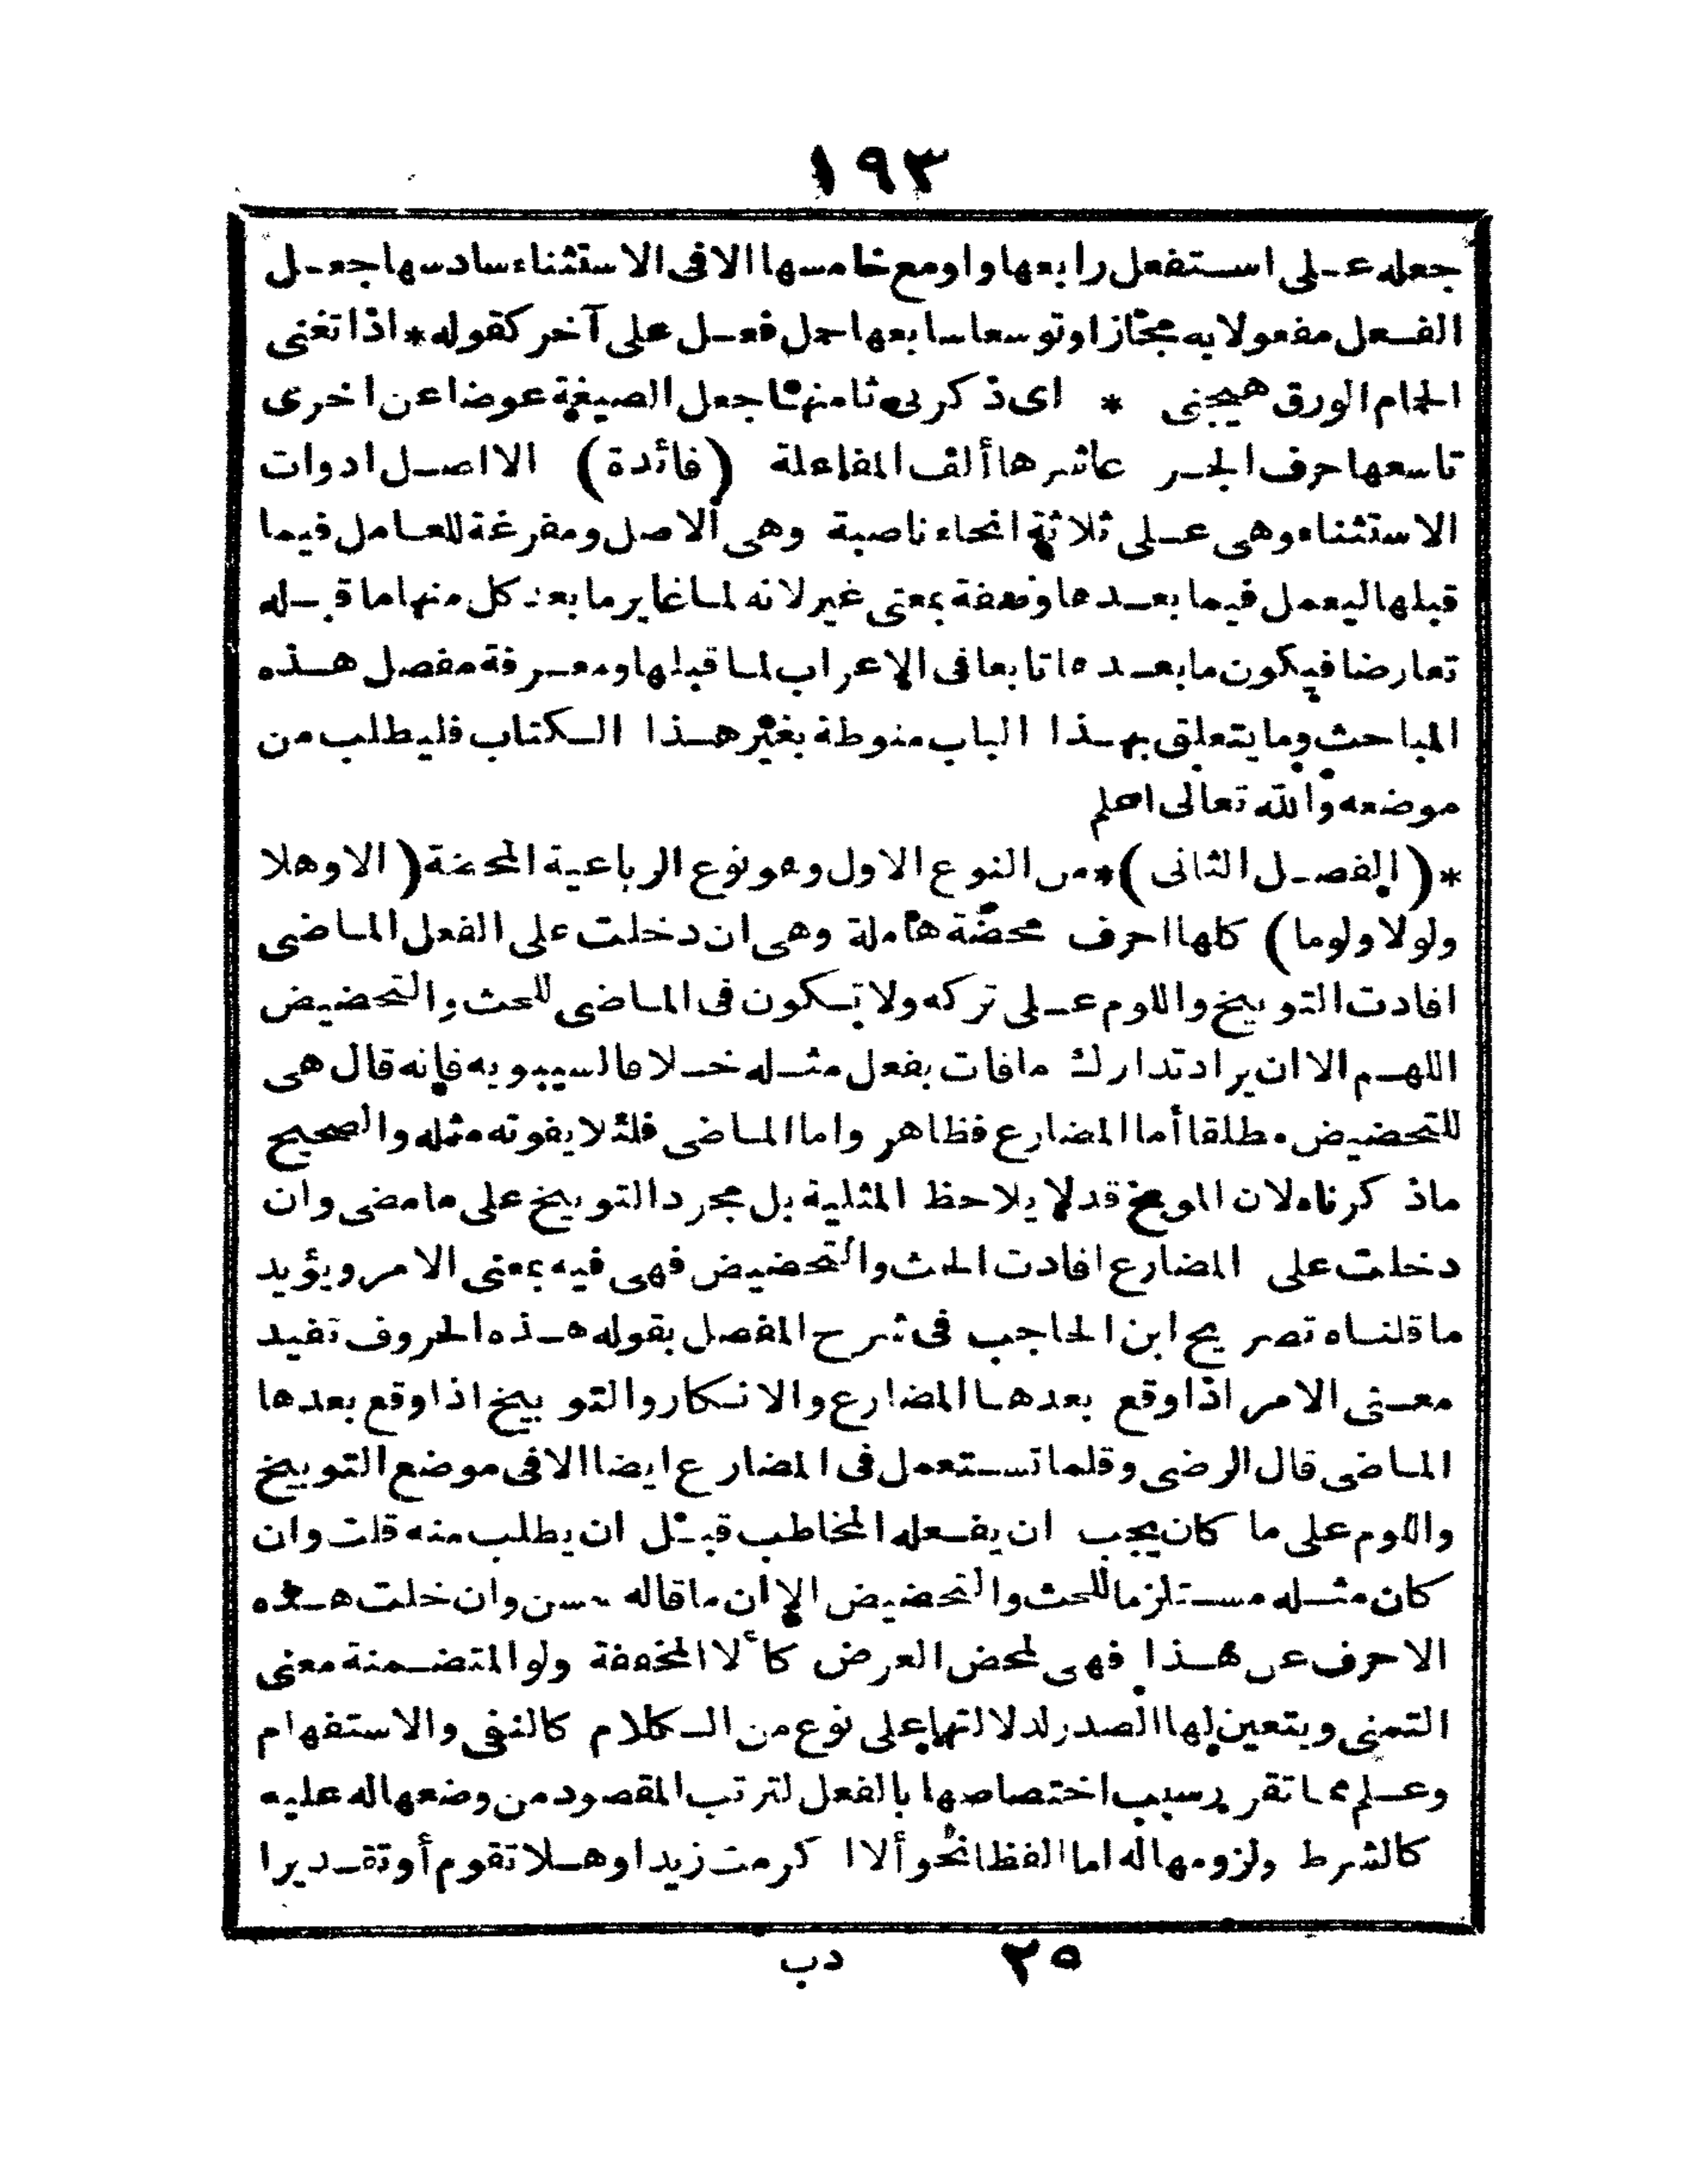 ١٩٣
جعله على استفعل رابعها واو مع خامسها الا فى الاستثناء سادسها جعل
الفعل مفعولا به مجازا وتوسعا سابعها حمل فعل على آخر كقوله * اذا تغنى
الحمام الورق هيجنى * اى ذكرنى ثامنها جعل الصيغة عوضا عن اخرى
تاسعها حرف الجر عاشرها ألف المفاعلة (فائدة) الا اصل ادوات
الاستثناء وهى على ثلاثة انحاء ناصبة وهى الاصل ومفرغة للعامل فيما
قبلها ليعمل فيما بعدها وصفة بمعنى غير لانه لما غاير ما بعد كل منها ما قبله
تعارضا فيكون ما بعدها تابعا فى الاعراب لما قبلها ومعرفة مفصل هذه
المباحث وما يتعلق بهذا الباب منوطة بغير هذا الكتاب فليطلب من
موضعه والله تعالى اعلم
*(الفصل الثانى)* من النوع الاول وهو نوع الرباعية المحضة (الا وهلا
ولولا ولوما) كلها احرف محضة هاملة وهى ان دخلت على الفعل الماضى
افادت التوبيخ واللوم على تركه ولا تكون فى الماضى للحث والتحضيض
اللهم الا ان يراد تدارك مافات بفعل مثله خلافا لسيبويه فإنه قال هى
للتحضيض مطلقا أما المضارع فظاهر واما الماضى فلئلا يفوته مثله والصحيح
ماذكرناه لان الموبخ قد لا يلاحظ المثلية بل مجرد التوبيخ على ما مضى وان
دخلت على المضارع افادت الحث والتحضيض فهى فيه بمعنى الامر ويؤيد
ما قلناه تصريح ابن الحاجب فى شرح المفصل بقوله هذه الحروف تفيد
معنى الامر اذا وقع بعدها المضارع والانكار والتوبيخ اذا وقع بعدها
الماضى قال الرضى وقلما تستعمل فى المضارع ايضا الا فى موضع التوبيخ
واللوم على ما كان يجب ان يفعله المخاطب قبل ان يطلب منه قلت وان
كان مثله مستلزما للحث والتحضيض الا ان ما قاله حسن وان خلت هذه
الاحرف عن هذا فهى لمحض العرض كألا المخففة ولو المتضمنة معنى
التمنى ويتعين لها الصدر لدلالتها على نوع من الكلام كالنفى والاستفهام
وعلم مما تقرر سبب اختصاصها بالفعل لترتب المقصود من وضعها له عليه
كالشرط ولزومها له اما لفظا نحو ألا اكرمت زيدا وهلا تقوم أو تقديرا
٢٥ دب